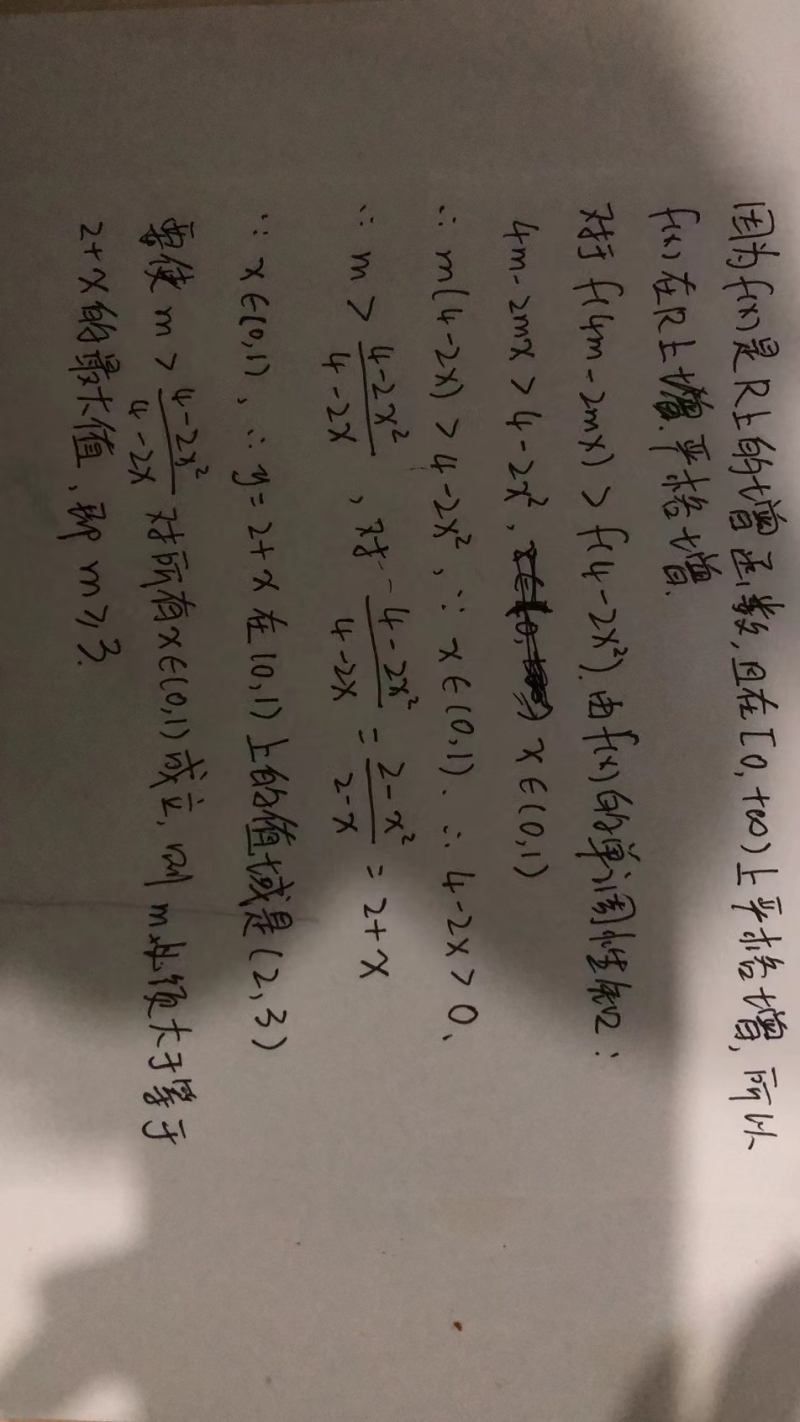 因为f(x)是R上的增函数,且在[0,+∞)上严格增,所以
f(x)在R上严格增.
对于f(4m-2mx)>f(4-2x²).由f(x)的单调性知:
4m-2mx>4-2x², x∈(0,1)
∴m(4-2x)>4-2x²,∵x∈(0,1).∴4-2x>0、
∴m>\frac{4-2x²}{4-2x},对于\frac{4-2x²}{4-2x}=\frac{2-x²}{2-x}=2+x
∵x∈(0,1),∴y=2+x在(0,1)上的值域是(2,3)
要使m>\frac{4-2x²}{4-2x}对所有x∈(0,1)成立,则m必须大于等于
2+x的最大值,即m≥3.